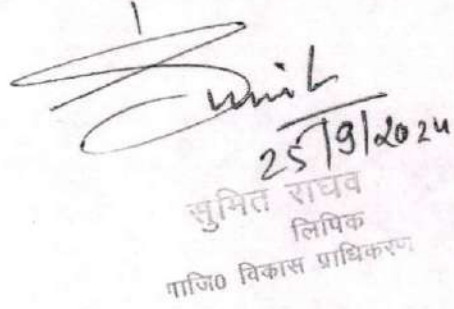 Sumit
25/9/2024
सुमित राघव
लिपिक
गाजि0 विकास प्राधिकरण